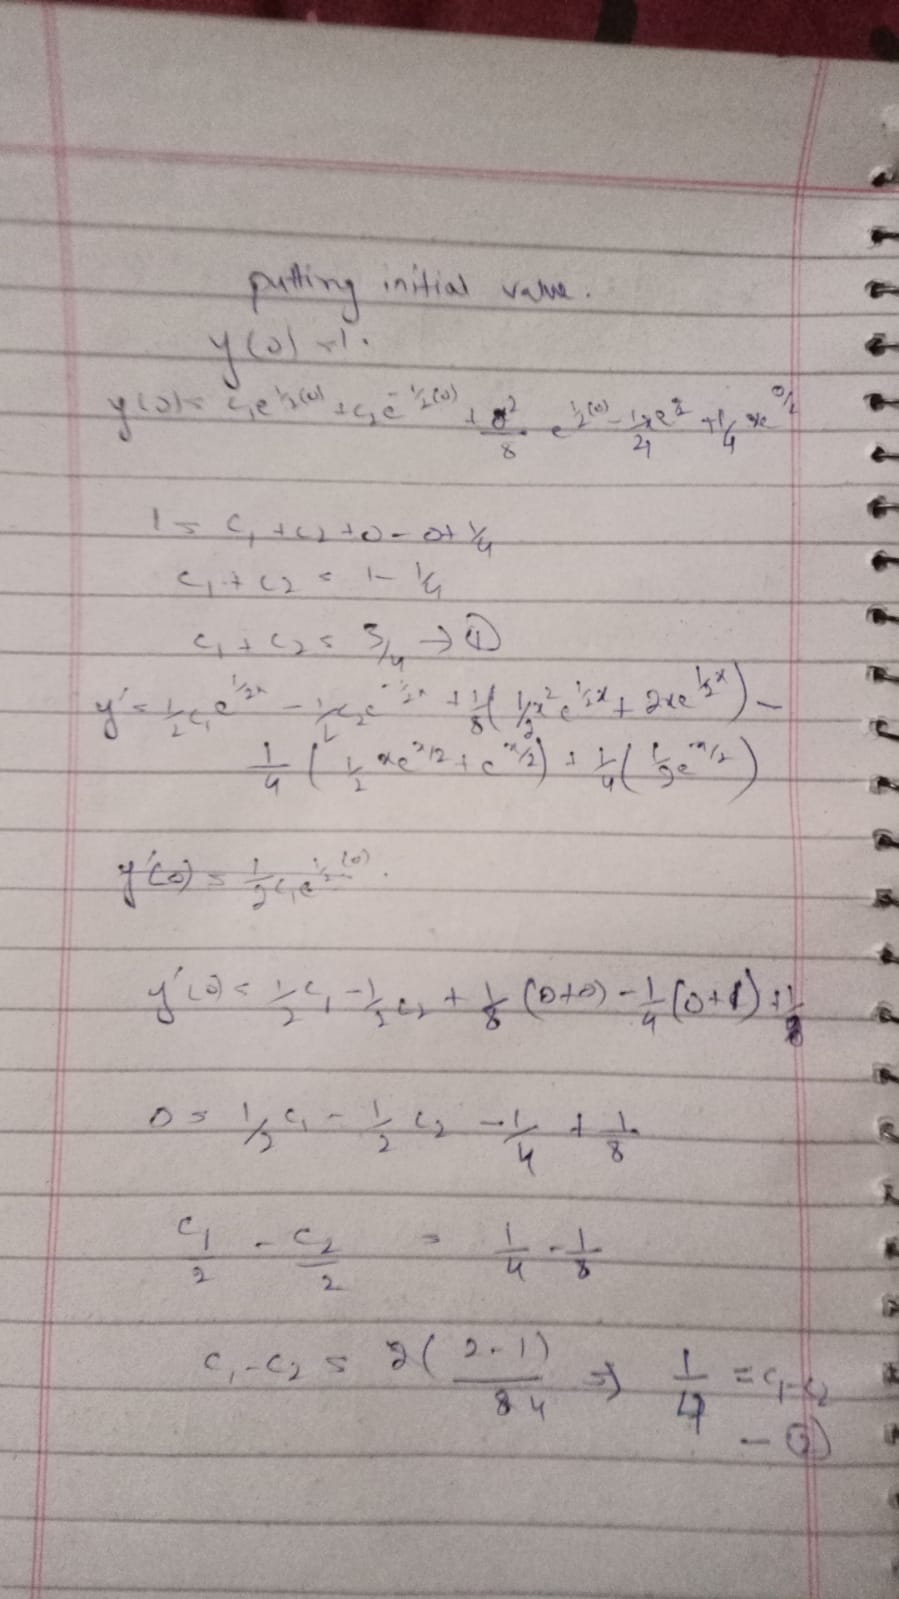 putting initial value.
y(0)=1.
y(0)= c₁e^{1/2(0)} + c₂e^{-1/2(0)} + 0²/8 e^{1/2(0)} - 1/4 xe^{0/2} + 1/4 xe^{0/2}
1 = c₁ + c₂ + 0 - 0 + 1/4
c₁ + c₂ = 1 - 1/4
c₁ + c₂ = 3/4 → ①
y' = 1/2 c₁e^{1/2x} - 1/2 c₂e^{-1/2x} + 1/8 ( 1/2 x²e^{1/2x} + 2xe^{1/2x} ) -
1/4 ( 1/2 xe^{x/2} + e^{x/2} ) + 1/4 ( 1/2 e^{x/2} )
y'(0) = 1/2 c₁e^{1/2(0)}.
y'(0) = 1/2 c₁ - 1/2 c₂ + 1/8 (0+0) - 1/4 (0+1) + 1/8
0 = 1/2 c₁ - 1/2 c₂ - 1/4 + 1/8
c₁/2 - c₂/2 = 1/4 - 1/8
c₁ - c₂ = 2( 2-1)/8 4 ⇒ 1/4 = c₁-c₂
- ②